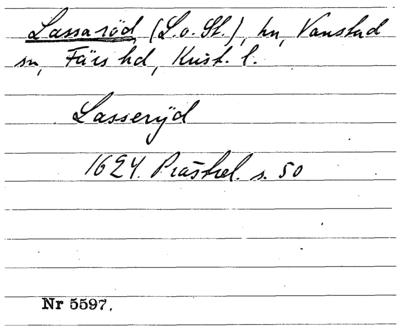 Lassaröd (L. o. St.), hn, Vanstad
sn, Färs hd, Krist. l.
Lasserÿd
1624. Prästrel. s. 50
Nr 5597.